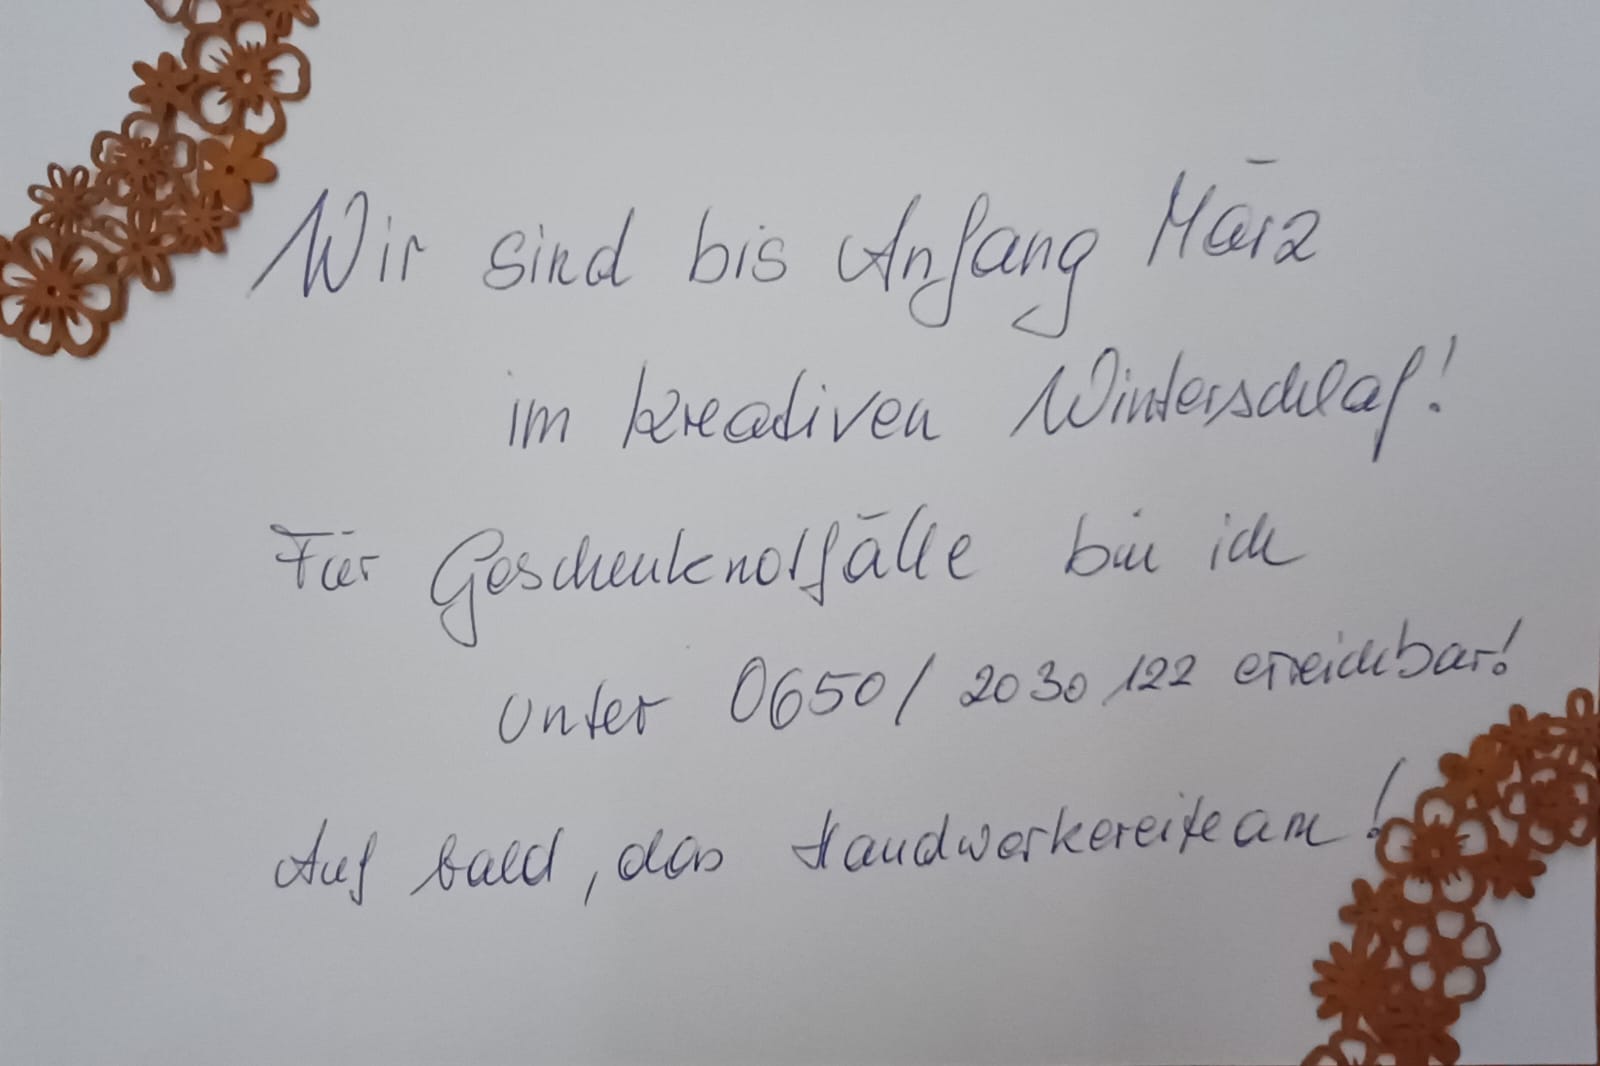 Wir sind bis Anfang März
im kreativen Winterschlaf!
Für Geschenknotfälle bin ich
unter 0650/2030122 erreichbar!
Auf bald, das Handwerkereiteam!